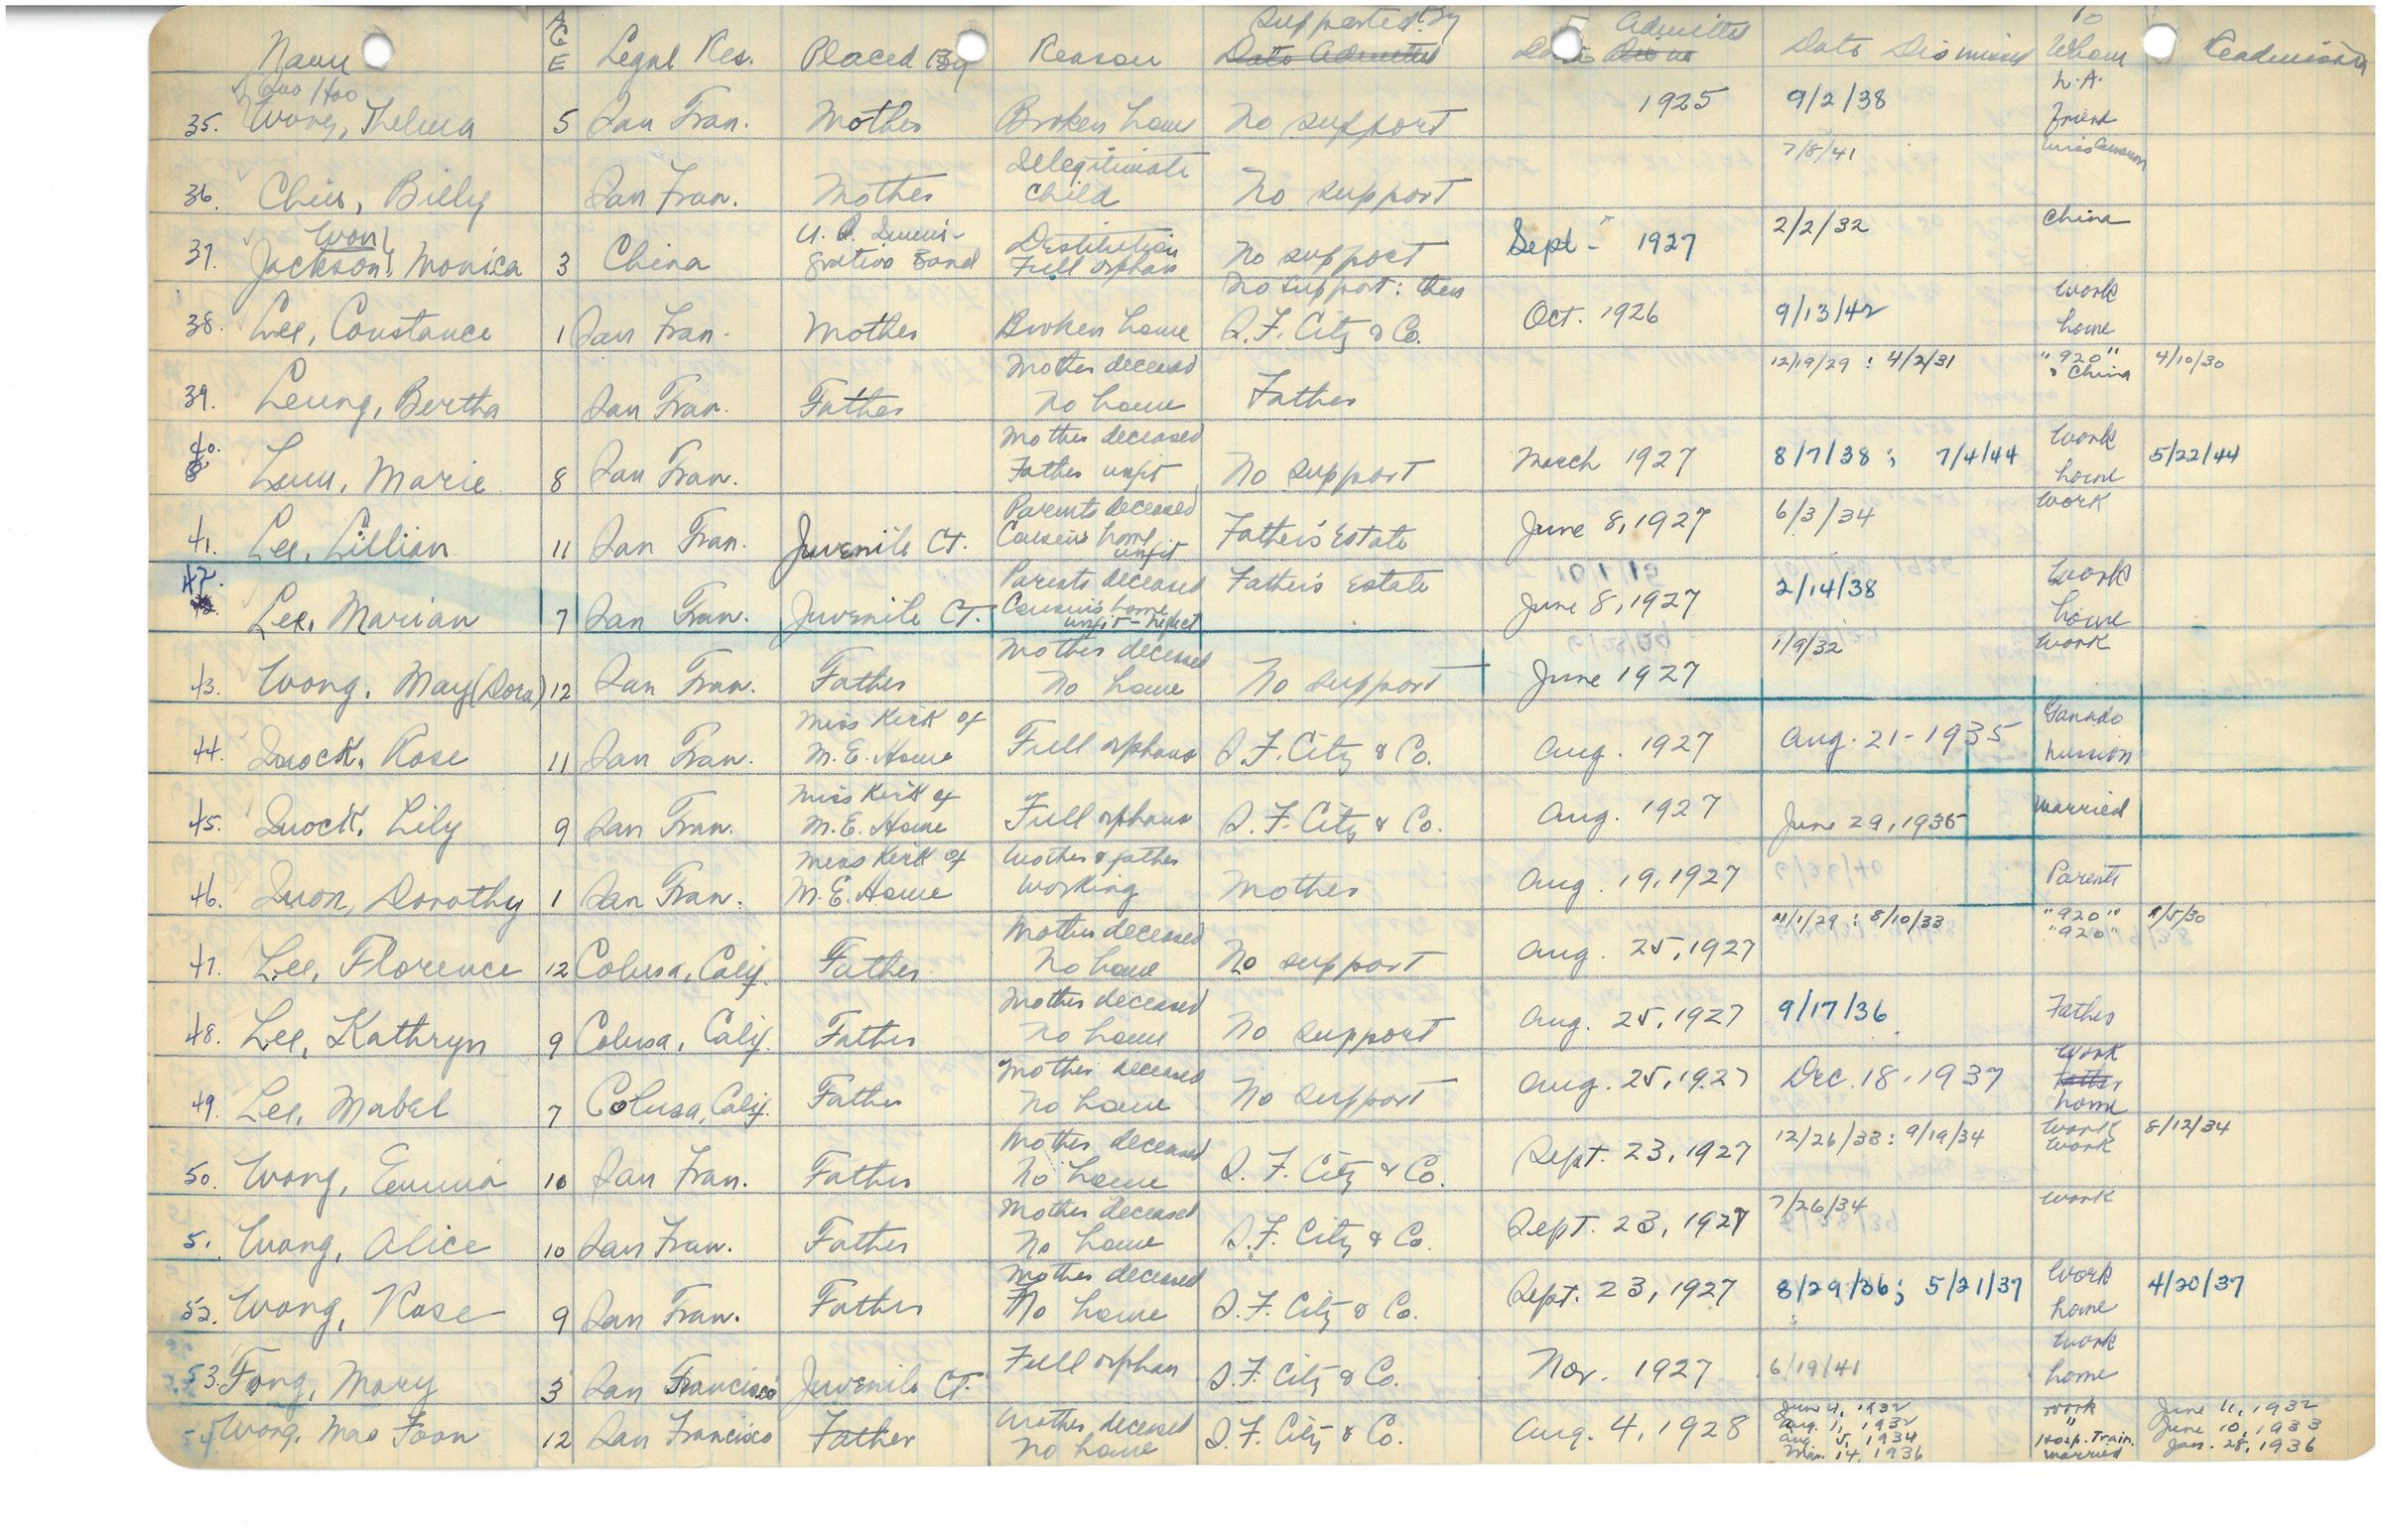 Name AGE Legal Res. Placed By Reason Supported By Date Admitted Date Admitted Date Dismissed To Whom Readmission
35. Quo Hoo Wong, Thelma 5 San Fran. Mother Broken home No support 1925 9/2/38 L.A. friend
36. Chin, Billy San Fran. Mother Illegitimate child No support 7/8/41 Miss Cameron
37. Wong Jackson, Monica 3 China U.S. Immigration Destitution Full orphan No support Sept - 1927 2/2/32 China
38. Lee, Constance 1 San Fran. Mother Broken home No support: then S.F. City & Co. Oct. 1926 9/13/42 work home
39. Leung, Bertha San Fran. Father Mother deceased No home Father 12/19/29 : 4/2/31 "920" China 4/10/30
40. Lum, Marie 8 San Fran. Mother deceased Father unfit No support March 1927 8/7/38 ; 7/4/44 Work home 5/22/44
41. Lee, Lillian 11 San Fran. Juvenile Ct. Parents deceased Cousin's home unfit Father's Estate June 8, 1927 6/3/34 Work
42. Lee, Marian 7 San Fran. Juvenile Ct. Parents deceased Cousin's home unfit - neglect Father's Estate June 8, 1927 2/14/38 Work home
43. Wong, May (Dora) 12 San Fran. Father Mother deceased No home No support June 1927 1/9/32 Work
44. Quock, Rose 11 San Fran. Miss Kirk of M.E. Home Full orphans S.F. City & Co. Aug. 1927 Aug. 21 - 1935 Ganado Mission
45. Quock, Lily 9 San Fran. Miss Kirk of M.E. Home Full orphans S.F. City & Co. Aug. 1927 June 29, 1935 Married
46. Quon, Dorothy 1 San Fran. Miss Kirk of M.E. Home Mother & father working Mother Aug. 19, 1927 Parents
47. Lee, Florence 12 Colusa, Calif. Father Mother deceased No home No support Aug. 25, 1927 11/1/29 : 8/10/33 "920" "920" 1/5/30
48. Lee, Kathryn 9 Colusa, Calif. Father Mother deceased No home No support Aug. 25, 1927 9/17/36 Father
49. Lee, Mabel 7 Colusa, Calif. Father Mother deceased No home No support Aug. 25, 1927 Dec. 18 - 1937 Work Father home
50. Wong, Emma 10 San Fran. Father Mother deceased No home S.F. City & Co. Sept. 23, 1927 12/26/33 : 9/19/34 Work Work 8/12/34
51 Wong, Alice 10 San Fran. Father Mother deceased No home S.F. City & Co. Sept. 23, 1927 7/26/34 Work
52. Wong, Rose 9 San Fran. Father Mother deceased No home S.F. City & Co. Sept. 23, 1927 8/29/36; 5/21/37 Work home 4/20/37
53. Fong, Mary 3 San Francisco Juvenile Ct. Full orphan S.F. City & Co. Nov. 1927 6/19/41 Work home
54 Wong, Mae Foon 12 San Francisco Father Mother deceased No home S.F. City & Co. Aug. 4, 1928 June 4, 1932 Work June 11, 1932
Aug. 1, 1932 " June 10, 1933
Aug. 5, 1934 Hosp. Train. Jan. 28, 1936
Mar. 14, 1936 Married